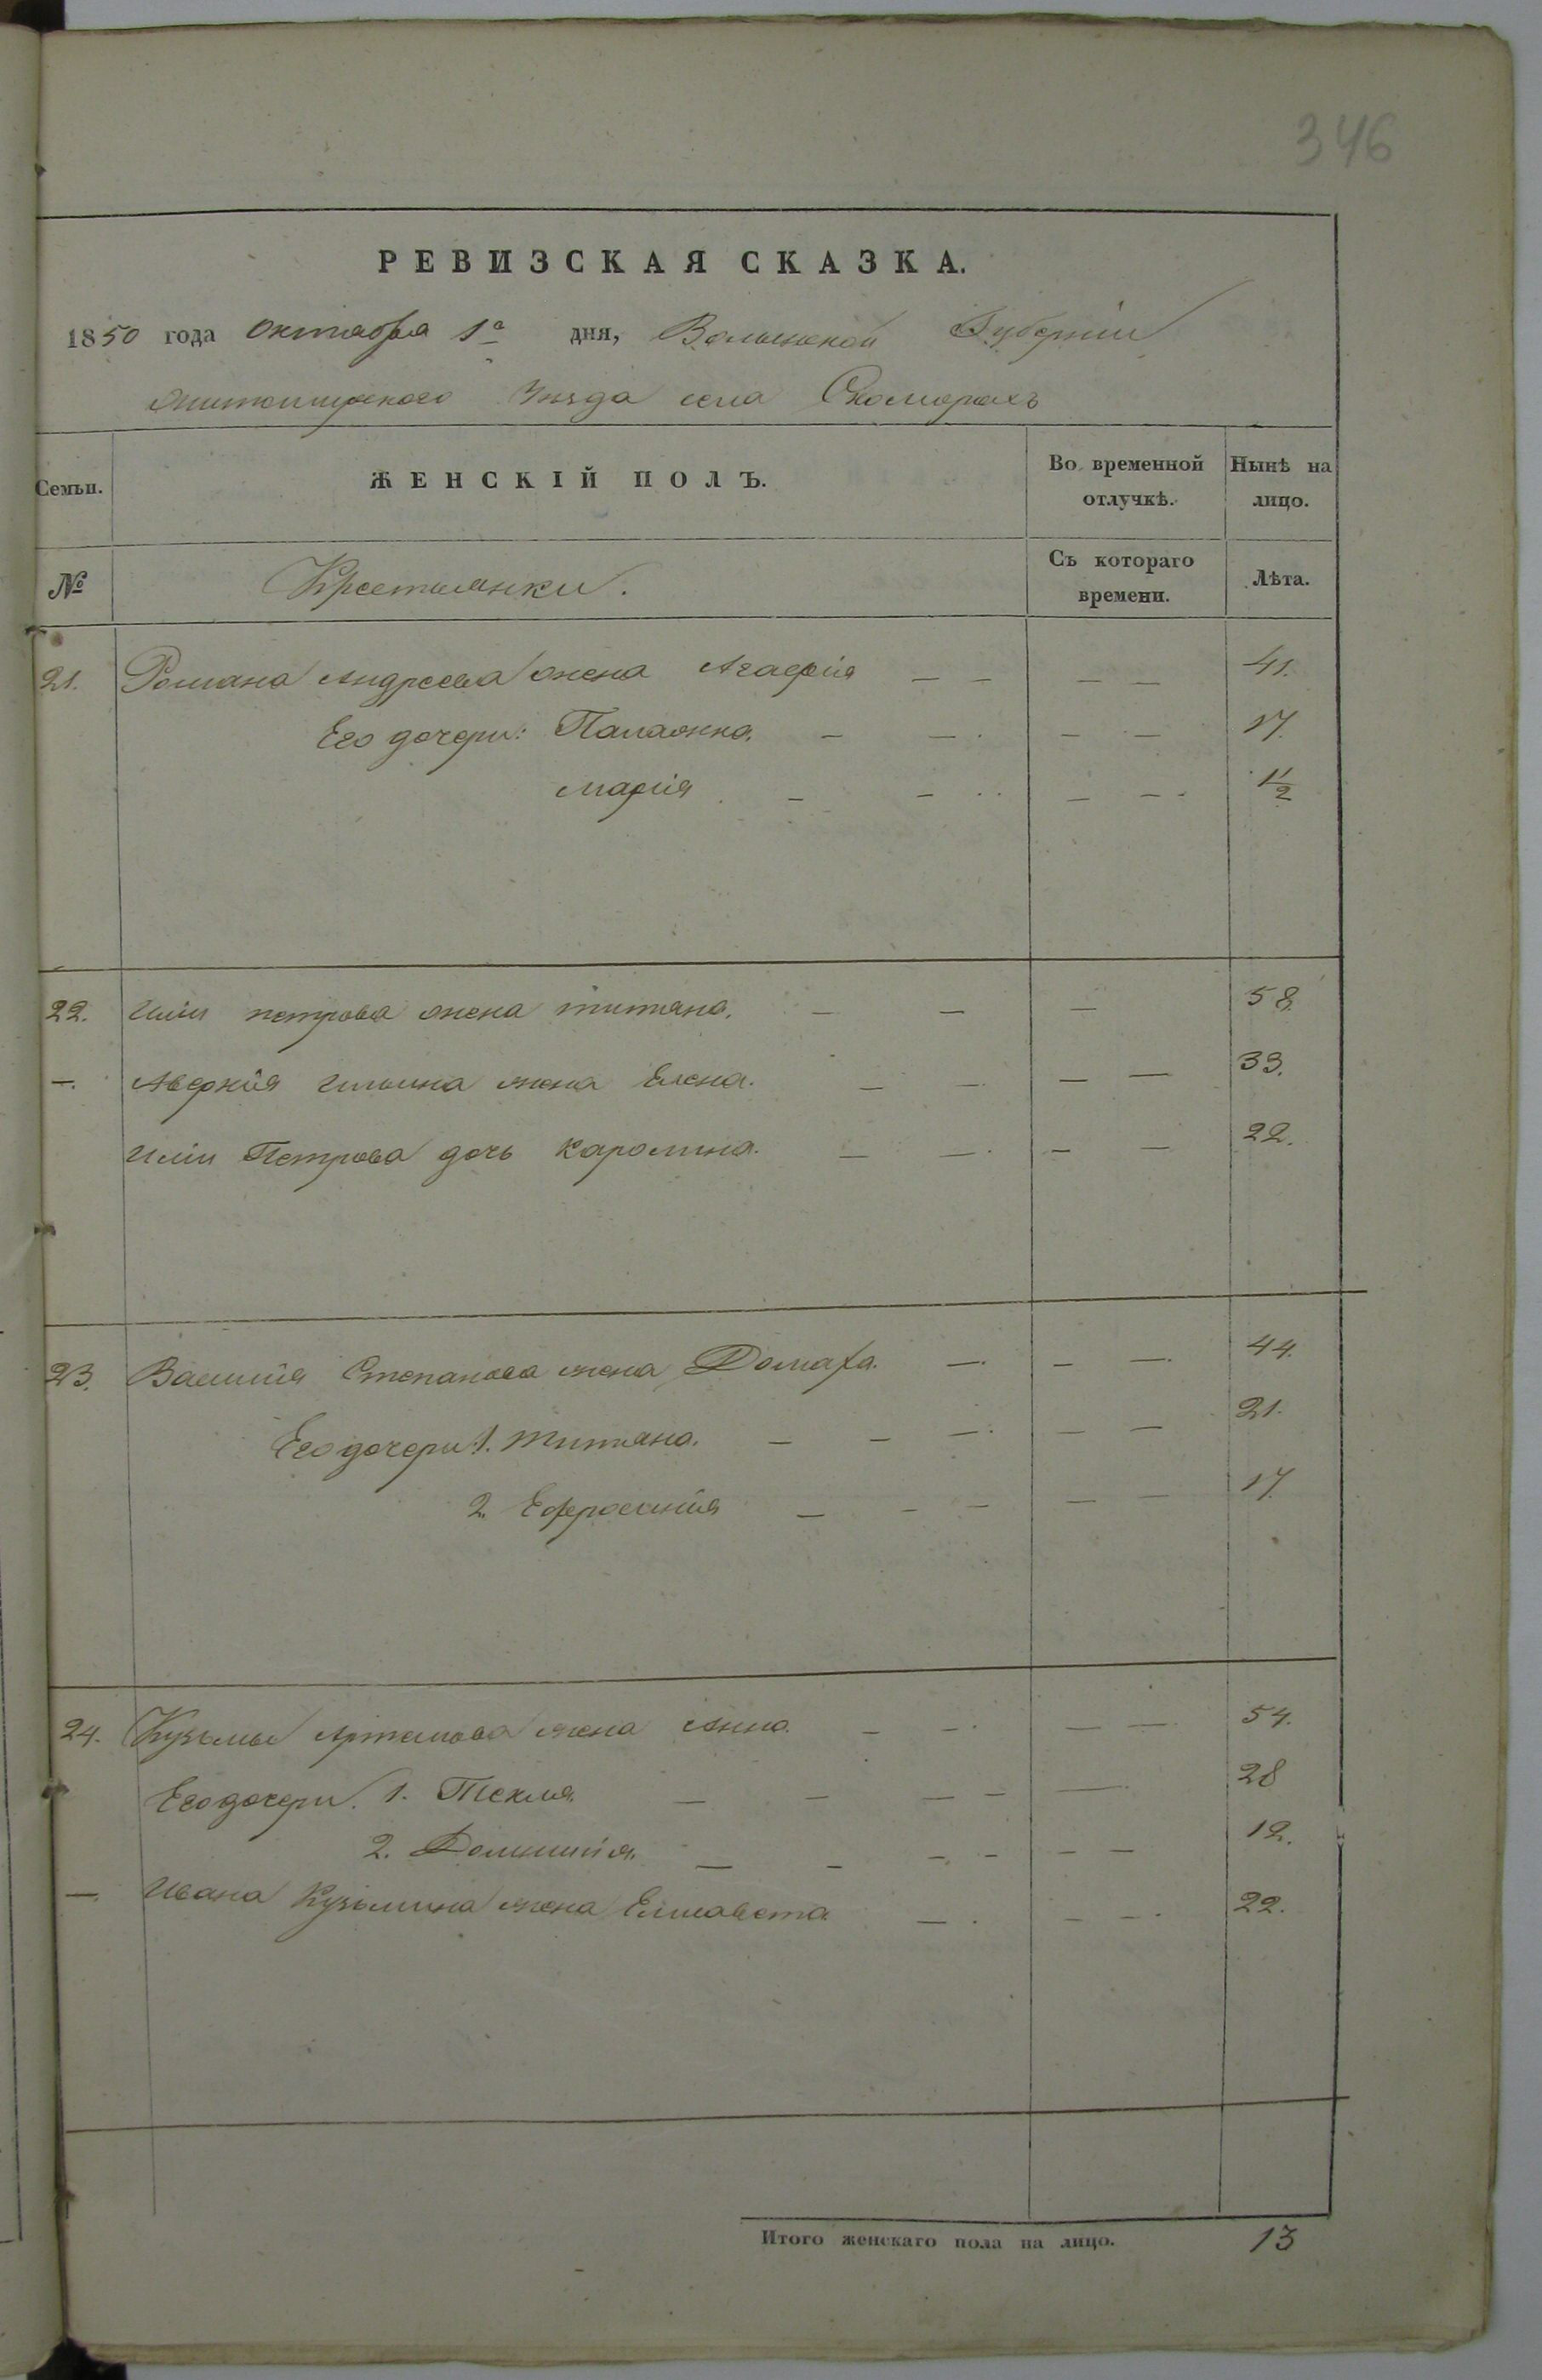 346
РЕВИЗСКАЯ СКАЗКА.
1850 года Октября 1го дня, Волынской Губерніи
Житомирского Уезда села Скоморохъ
Семьи. ЖЕНСКІЙ ПОЛЪ. Во временной отлучкѣ. Нынѣ на лицо.
№ Крестьянки. Съ котораго времени. Лѣта.
21. Романа Андреева жена Агафія — — — — 41.
Его дочери: Палажка. — — — — 17.
Марія — — — — 1 1/2
22. Иліи Петрова жена Титяна. — — — 58.
—. Аверкія Ильина жена Елена. — — — — 33.
Иліи Петрова дочь Каролина. — — — — 22.
23. Василія Степанова жена Домаха. — — — 44.
Его дочери 1. Титяна. — — — — — 21.
2. Ефросинія — — — — — 17.
24. Кузьмы Артемова жена Анна. — — — — 54.
Его дочери. 1. Текля. — — — — — 28
2. Доминикія. — — — — — — 12.
—. Ивана Кузьмина жена Елисавета — — — 22.
Итого женскаго пола на лицо. 13